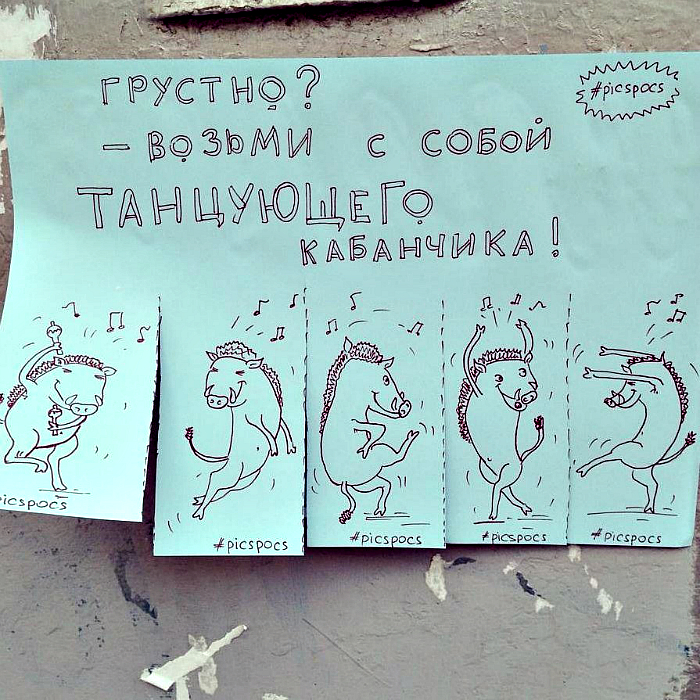 ГРУСТНО?
#picspocs
– ВОЗЬМИ С СОБОЙ
ТАНЦУЮЩЕГО
КАБАНЧИКА!
picspocs
#picspocs
#picspocs
#picspocs
#picspocs